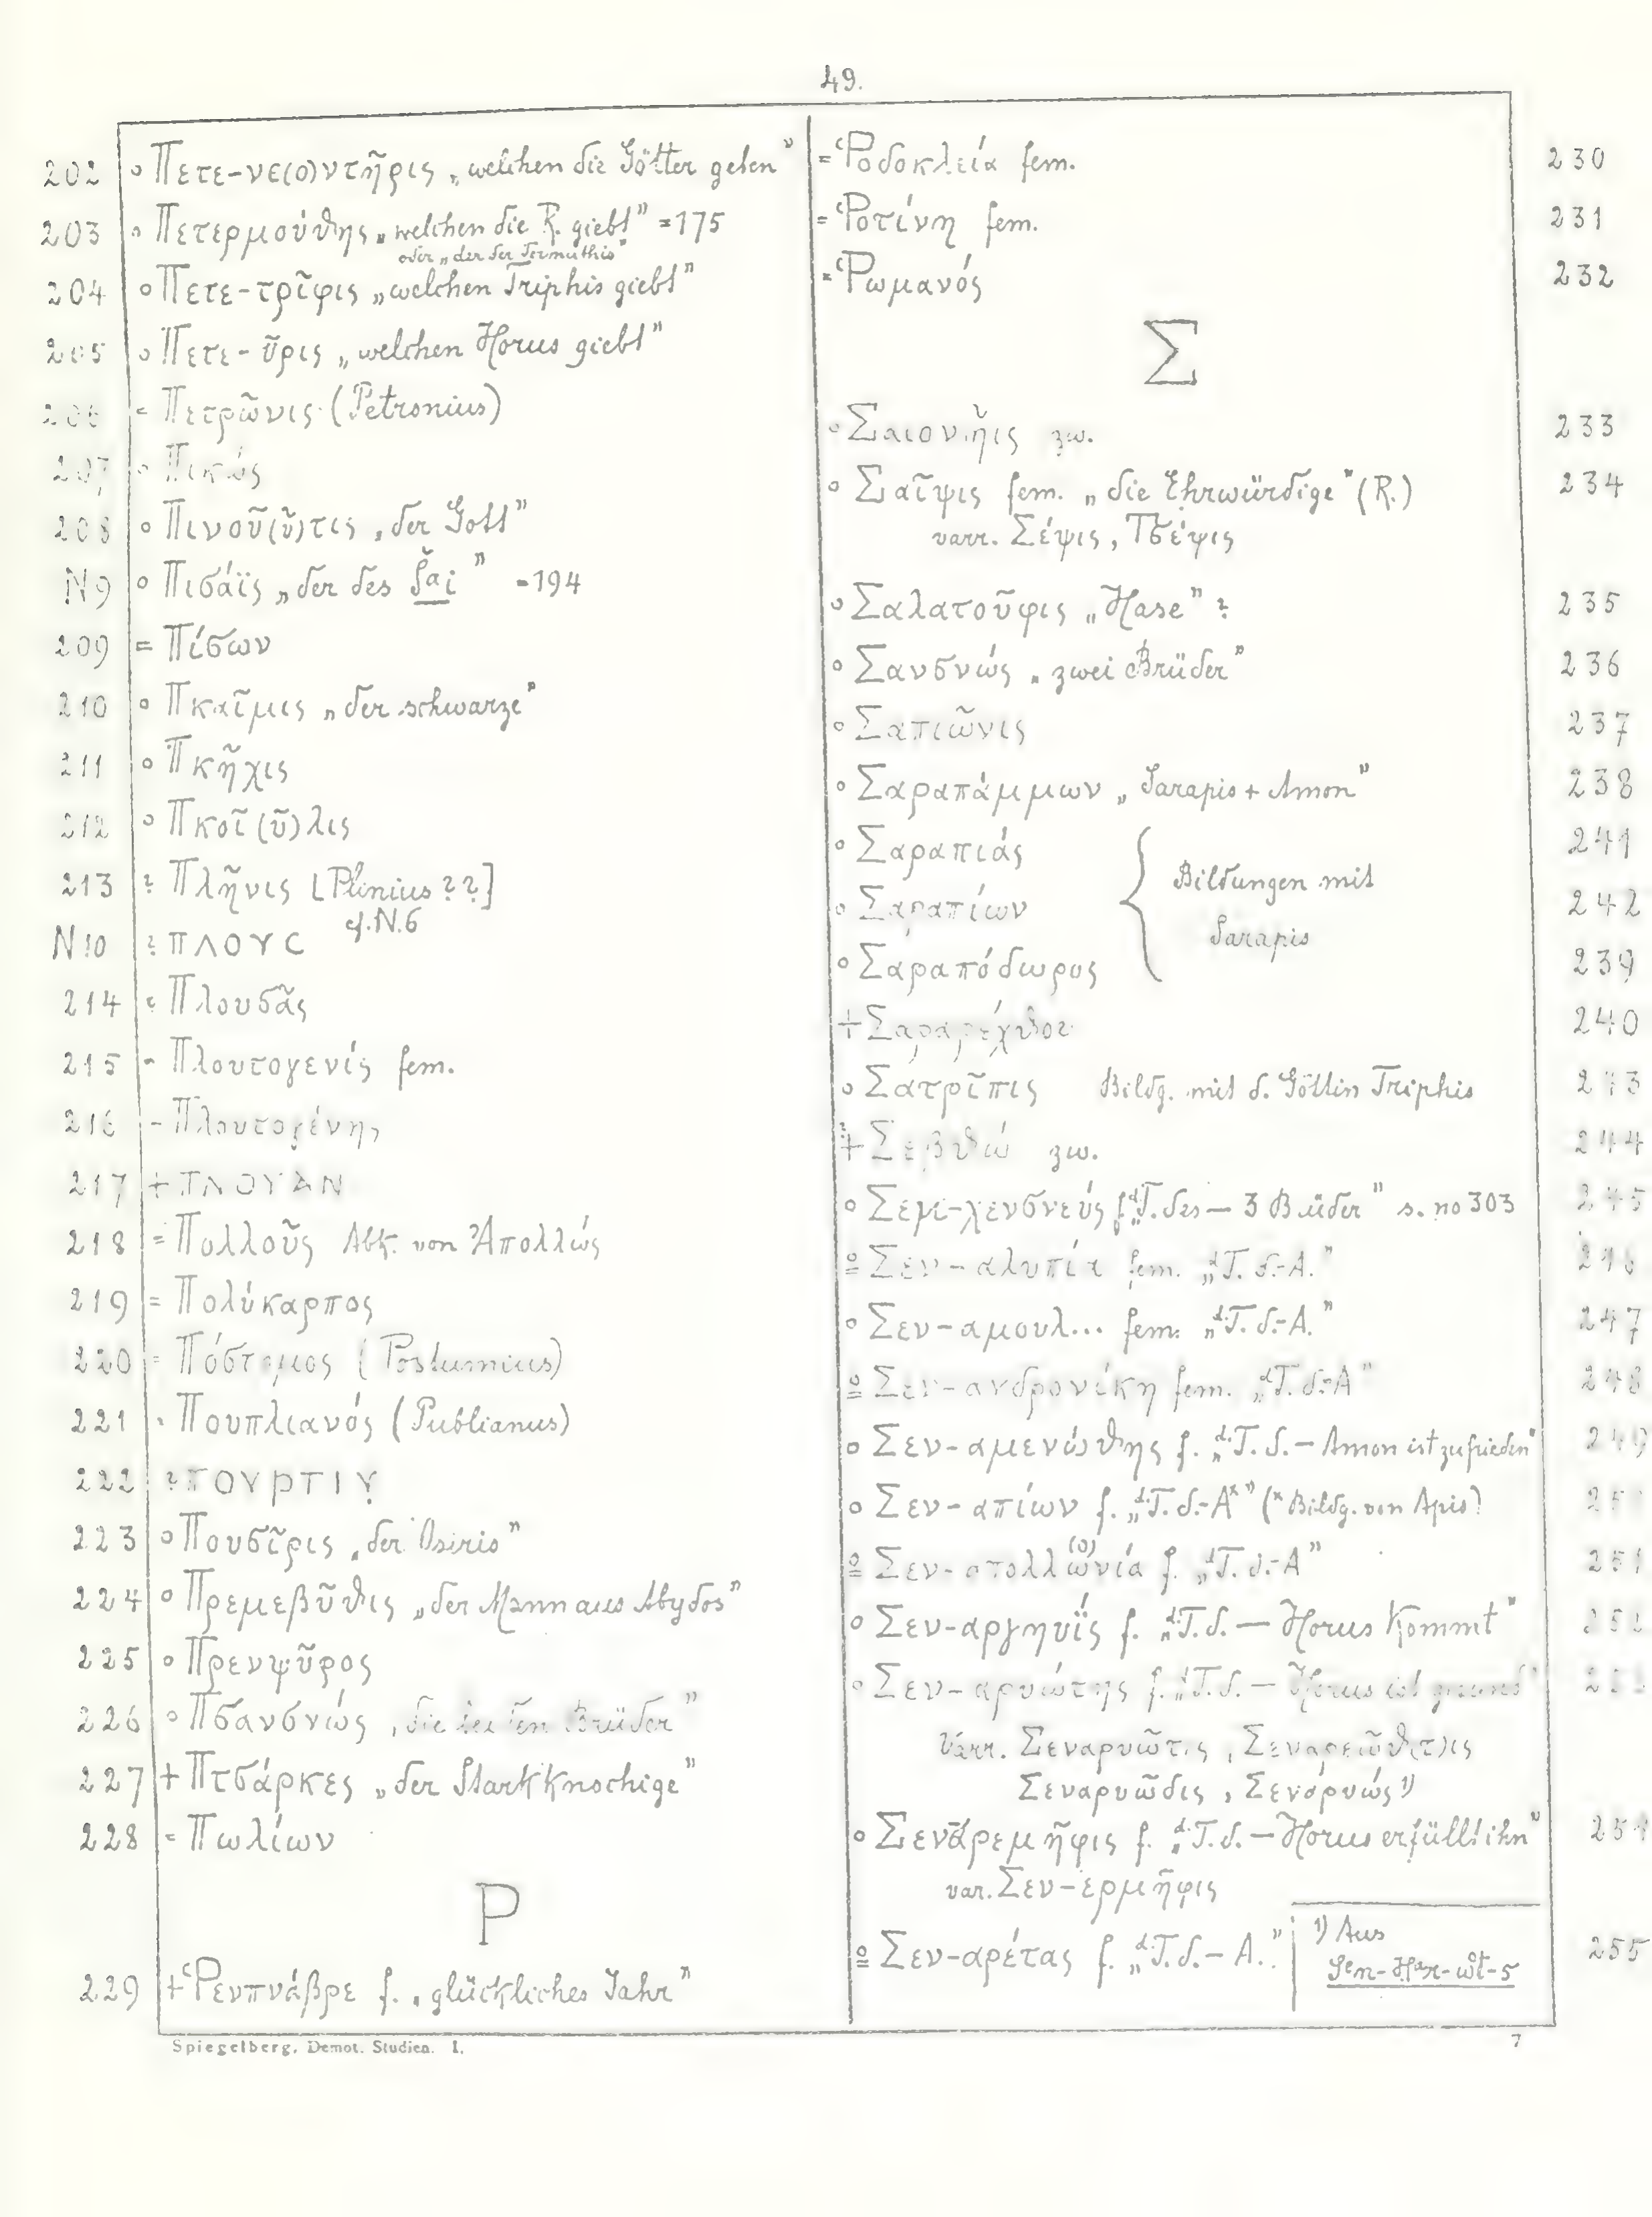 49.
202 ° Πετε-νε(ο)ντῆρις „welchen die Götter geben"
203 ° Πετερμούθης „welchen die R. giebt" = 175
oder „der der Termuthis"
204 ° Πετε-τρῖφις „welchen Triphis giebt"
205 ° Πετε-ῦρις „welchen Horus giebt"
206 = Πετρῶνις (Petronius)
207 ° Πικώς
208 ° Πινοῦ(ῦ)τις „der Gott"
N9 ° Πισάϊς „der des Šai" = 194
209 = Πίσων
210 ° Πκαῖμις „der schwarze"
211 ° Πκῆχις
212 ° Πκοῖ(ῦ)λις
213 ? Πλῆνις [Plinius ??]
cf. N.6
N10 ? ΠΛΟΥC
214 Πλουσᾶς
215 = Πλουτογενίς fem.
216 = Πλουτογένης
217 + ΠΛΟΥΑΝ
218 = Πολλοῦς Abk. von Ἀπολλώς
219 = Πολύκαρπος
220 = Πόστομος (Postumius)
221 = Πουπλιανός (Publianus)
222 ? ΠΟΥΡΤΙΥ
223 ° Πουσῖρις „der Osiris"
224 ° Πρεμεβῦθις „der Mann aus Abydos"
225 ° Πρενψῦρος
226 ° Πσανσνώς „die beiden Brüder"
227 + Πτσάρκες „der Starkknochige"
228 = Πωλίων
Ρ
229 + Ῥενπνάβρε f. „glückliches Jahr"
= Ῥοδοκλεία fem. 230
= Ῥοτίνη fem. 231
= Ῥωμανός 232
Σ
° Σαιονῆις zw. 233
° Σαῖψις fem. „die Ehrwürdige" (R.) 234
varr. Σέψις, Τσέψις
° Σαλατοῦφις „Hase" ? 235
° Σανσνώς „zwei Brüder" 236
° Σαπιῶνις 237
° Σαραπάμμων „Sarapis + Amon" 238
° Σαραπιάς 241
° Σαραπίων 242
Bildungen mit
Sarapis
° Σαραπόδωρος 239
+ Σαραρέχθοι 240
° Σατρῖπις Bildg. mit d. Göttin Triphis 243
+ Σεβθώ zw. 244
° Σεμι-χενσνεύς f. „d. T. des — 3 Brüder" s. no 303 245
° Σεν-αλυπία fem. „d. T. d.-A." 246
° Σεν-αμουλ... fem. „d. T. d.-A." 247
° Σεν-ανδρονίκη fem. „d. T. d.-A" 248
° Σεν-αμενώθης f. „d. T. d. — Amon ist zufrieden" 249
° Σεν-απίων f. „d. T. d.-Aˣ" (ˣ Bildg. von Apis) 250
° Σεν-απολλώ(ο)νία f. „d. T. d.-A" 251
° Σεν-αρyηυΐς f. „d. T. d. — Horus kommt" 252
° Σεν-αρυώτης f. „d. T. d. — Horus ist gesund" 253
Varr. Σεναρυῶτις, Σεναρειῶθ(τ)ις
Σεναρυῶδις, Σεναρυώς ¹⁾
° Σενάρεμῆφις f. „d. T. d. — Horus erfüllt ihn" 254
var. Σεν-ερμῆφις
° Σεν-αρέτας f. „d. T. d. — A." 255
¹⁾ Aus
Šen-Har-wt-s
Spiegelberg, Demot. Studien. I. 7